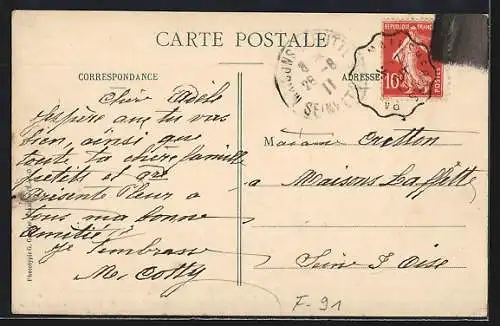 CARTE POSTALE
CORRESPONDANCE
ADRESSE
REPUBLIQUE FRANÇAISE
10
POSTES
28-8
11
SEINE
Chère Adèle
J'espère que tu vas
bien, ainsi que
toute ta chère famille
petits et grd
Présente Fleur a
tous ma bonne
amitié
Je t'embrasse
M. Cotty
Madame Cretton
a Maisons Laffitte
Seine & Oise
F-91